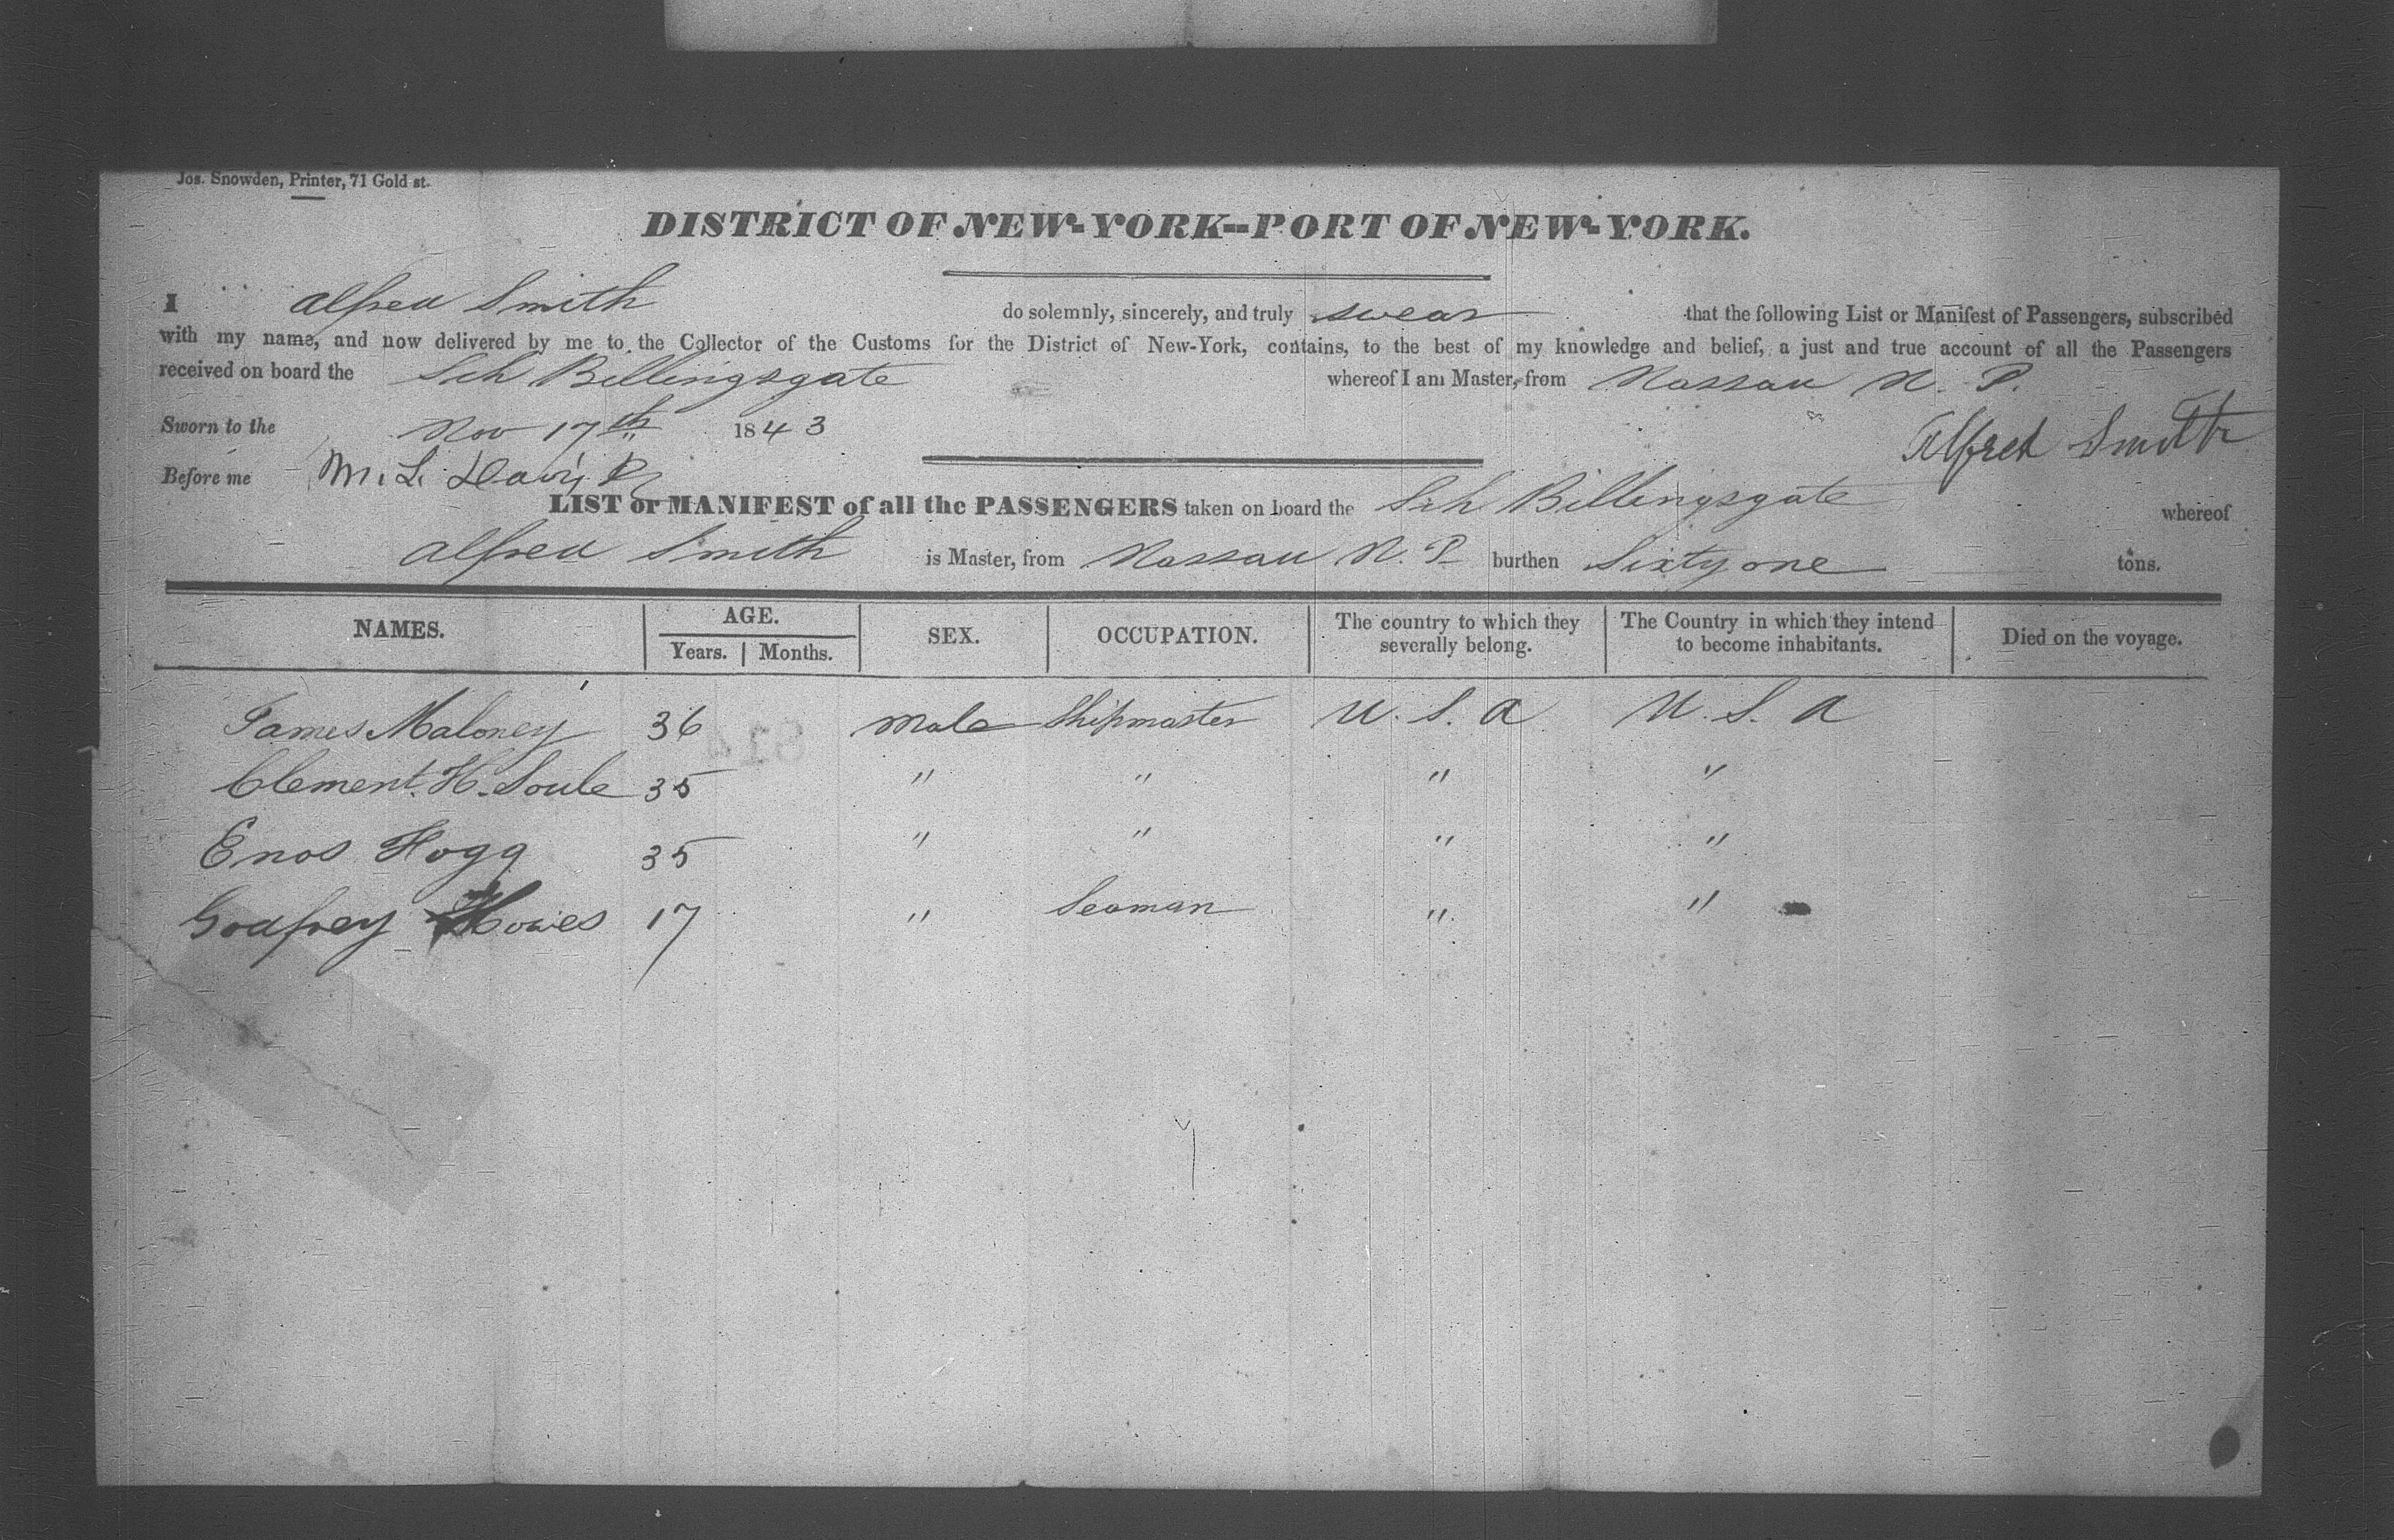 Jos. Snowden, Printer, 71 Gold st.
DISTRICT OF NEW-YORK--PORT OF NEW-YORK.
I Alfred Smith do solemnly, sincerely, and truly swear that the following List or Manifest of Passengers, subscribed
with my name, and now delivered by me to the Collector of the Customs for the District of New-York, contains, to the best of my knowledge and belief, a just and true account of all the Passengers
received on board the Sch Billingsgate whereof I am Master, from Nassau N. P.
Sworn to the Nov 17th 1843 Alfred Smith
Before me M. L. Davis
LIST or MANIFEST of all the PASSENGERS taken on board the Sch Billingsgate whereof
Alfred Smith is Master, from Nassau N. P. burthen Sixty one tons.
NAMES. AGE. Years. Months. SEX. OCCUPATION. The country to which they severally belong. The Country in which they intend to become inhabitants. Died on the voyage.
James Maloney 36 Male Shipmaster U. S. A U. S. A
Clement. H. Soule 35 " " " "
Enos Hogg 35 " " " "
Godfrey Howes 17 " Seaman " "